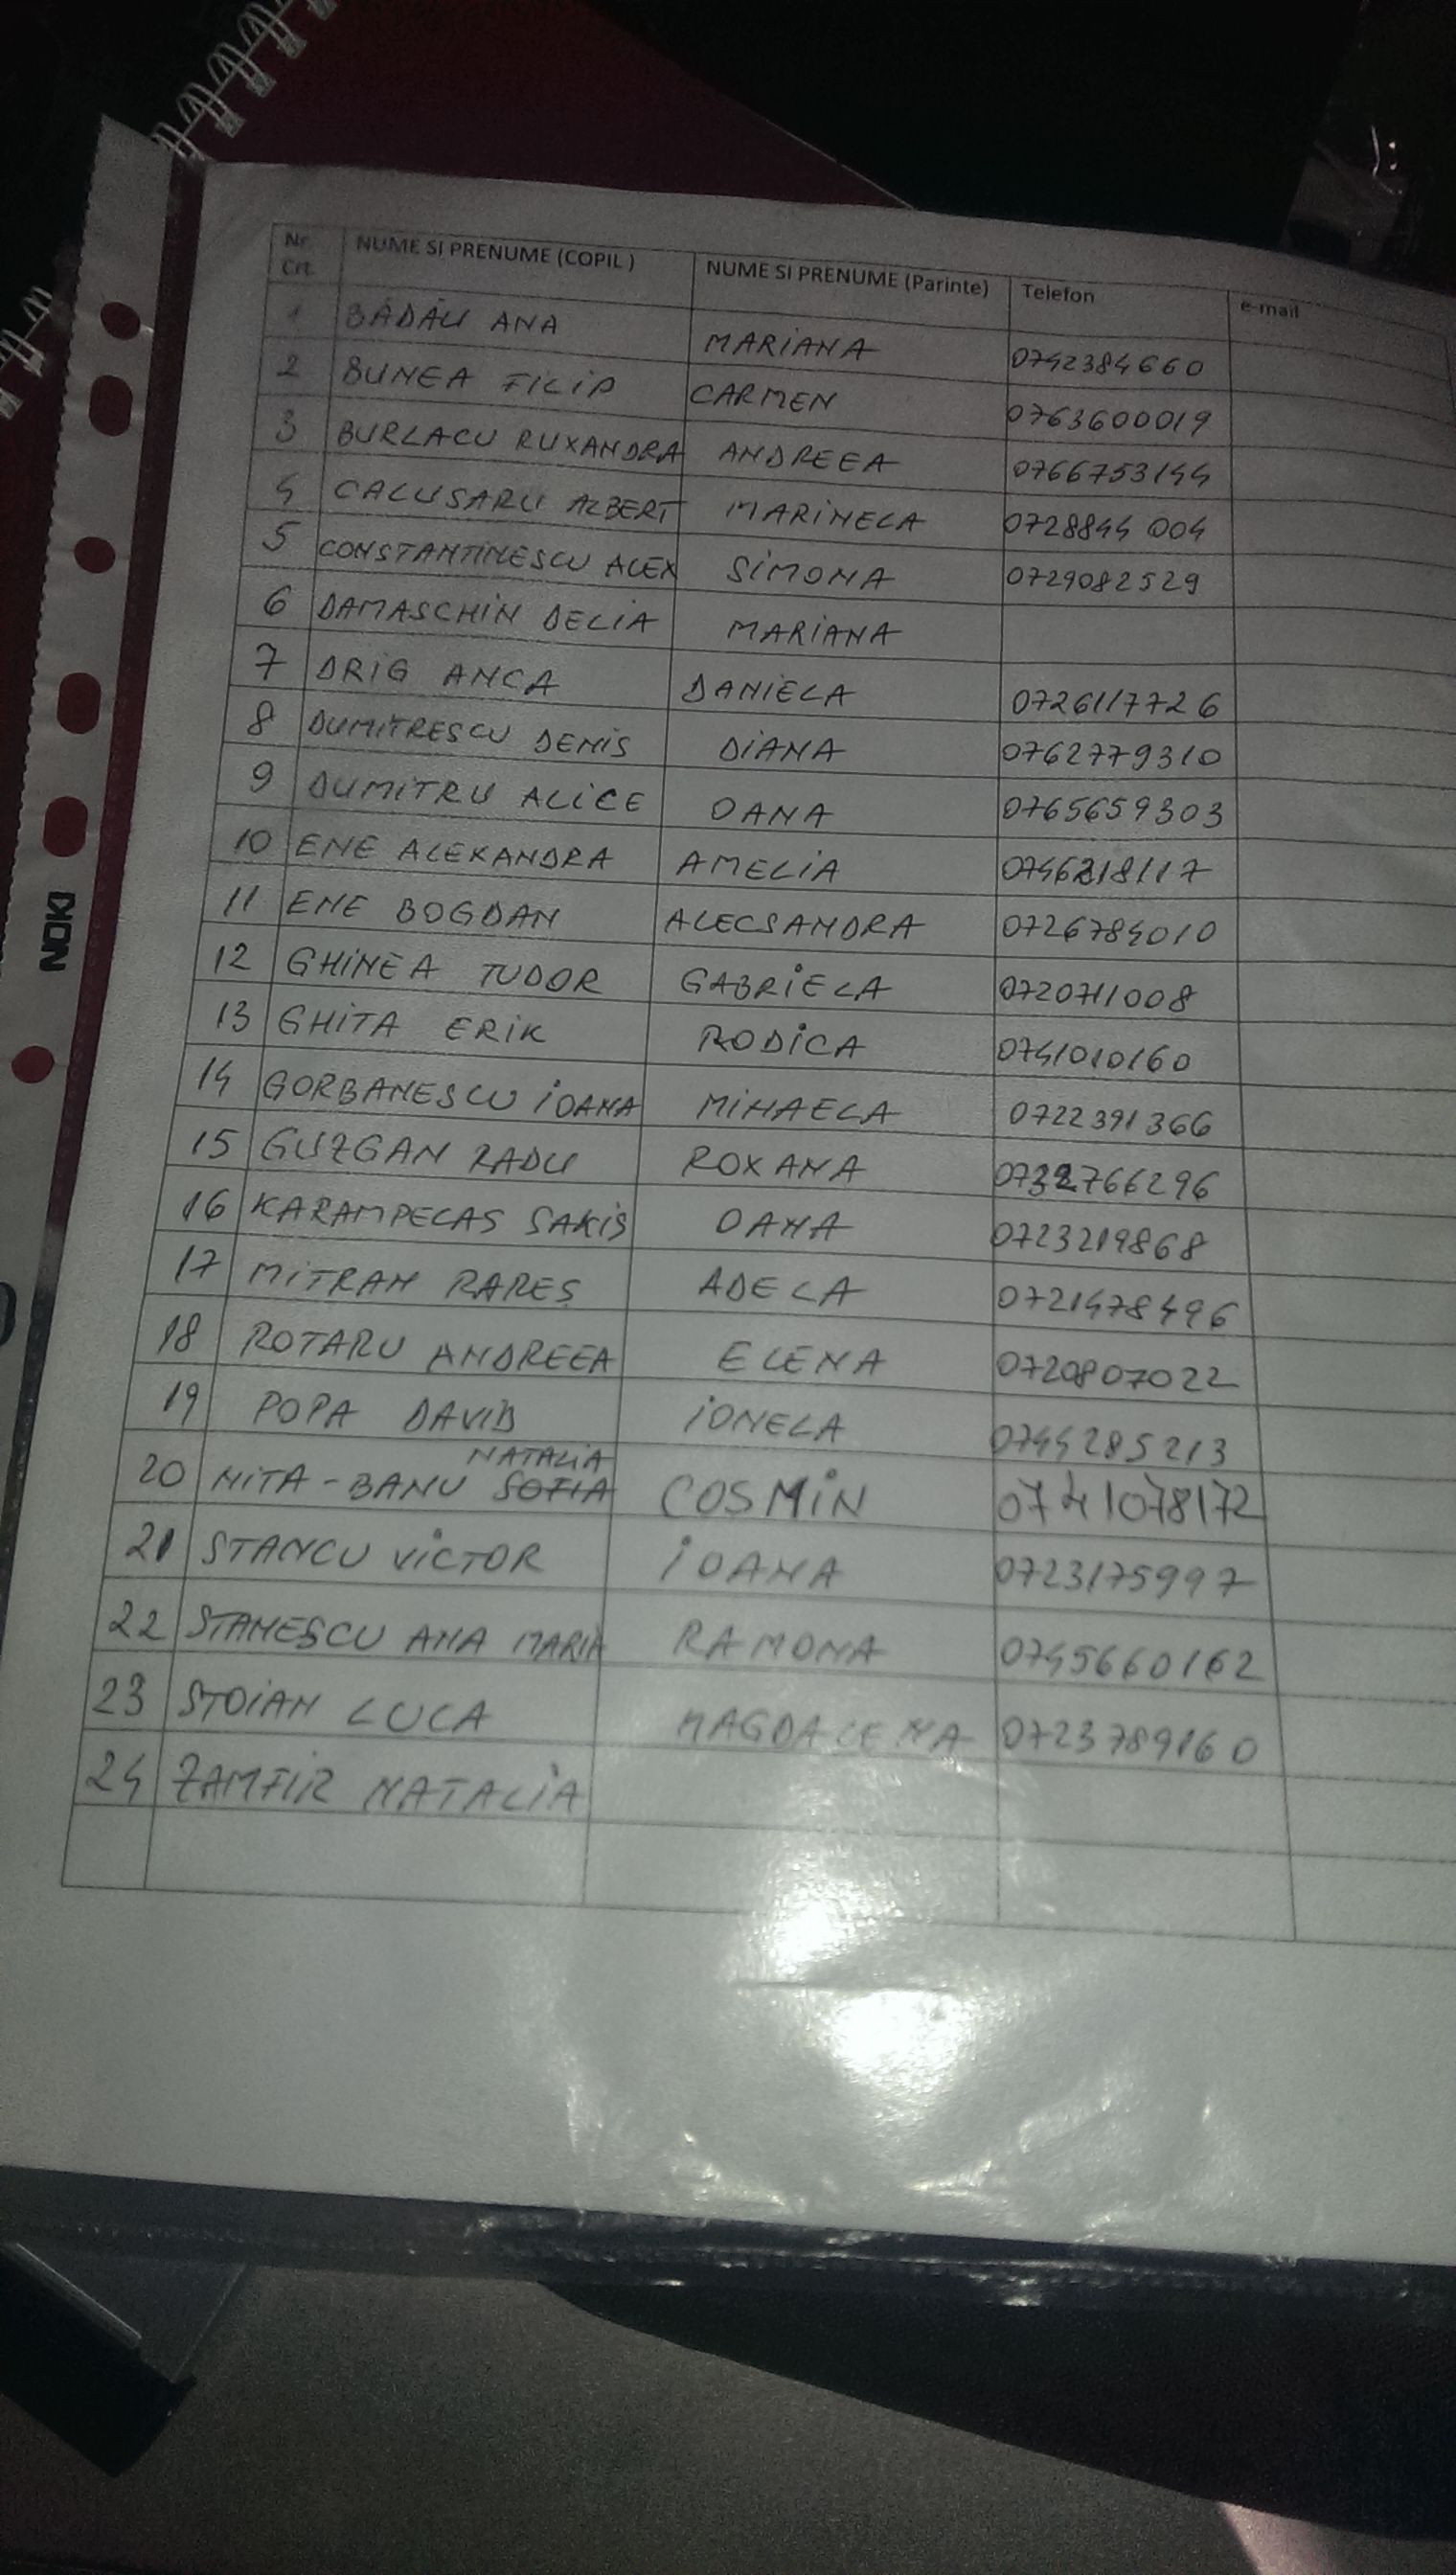 Nr. Crt. NUME SI PRENUME (COPIL ) NUME SI PRENUME (Parinte) Telefon e-mail
1 BĂDĂU ANA MARIANA 0742384660
2 BUNEA FILIP CARMEN 0763600019
3 BURLACU RUXANDRA ANDREEA 0766753144
4 CALUSARU ALBERT MARINELA 0728844 004
5 CONSTANTINESCU ALEX SIMONA 0729082529
6 DAMASCHIN DELIA MARIANA
7 DRIG ANCA DANIELA 0726117726
8 DUMITRESCU DENIS DIANA 0762779310
9 DUMITRU ALICE OANA 0765659303
10 ENE ALEXANDRA AMELIA
11 ENE BOGDAN ALECSANDRA 0726784010
12 GHINEA TUDOR GABRIELA 0720711008
13 GHITA ERIK RODICA 0741010160
14 GORBANESCU IOANA MIHAELA 0722391366
15 GUZGAN RADU ROXANA
16 KARAMPELAS SAKIS OANA 0723219868
17 MITRAN RARES ADELA 0721478496
18 ROTARU ANDREEA ELENA 0720807022
19 POPA DAVID IONELA 0744285213
NATALIA
20 NITA-BANU SOFIA COSMIN 0741078172
21 STANCU VICTOR IOANA 0723175997
22 STANESCU ANA MARIA RAMONA 0745660162
23 STOIAN LUCA MAGDALENA 0723789160
24 ZAMFIR NATALIA
NOKI